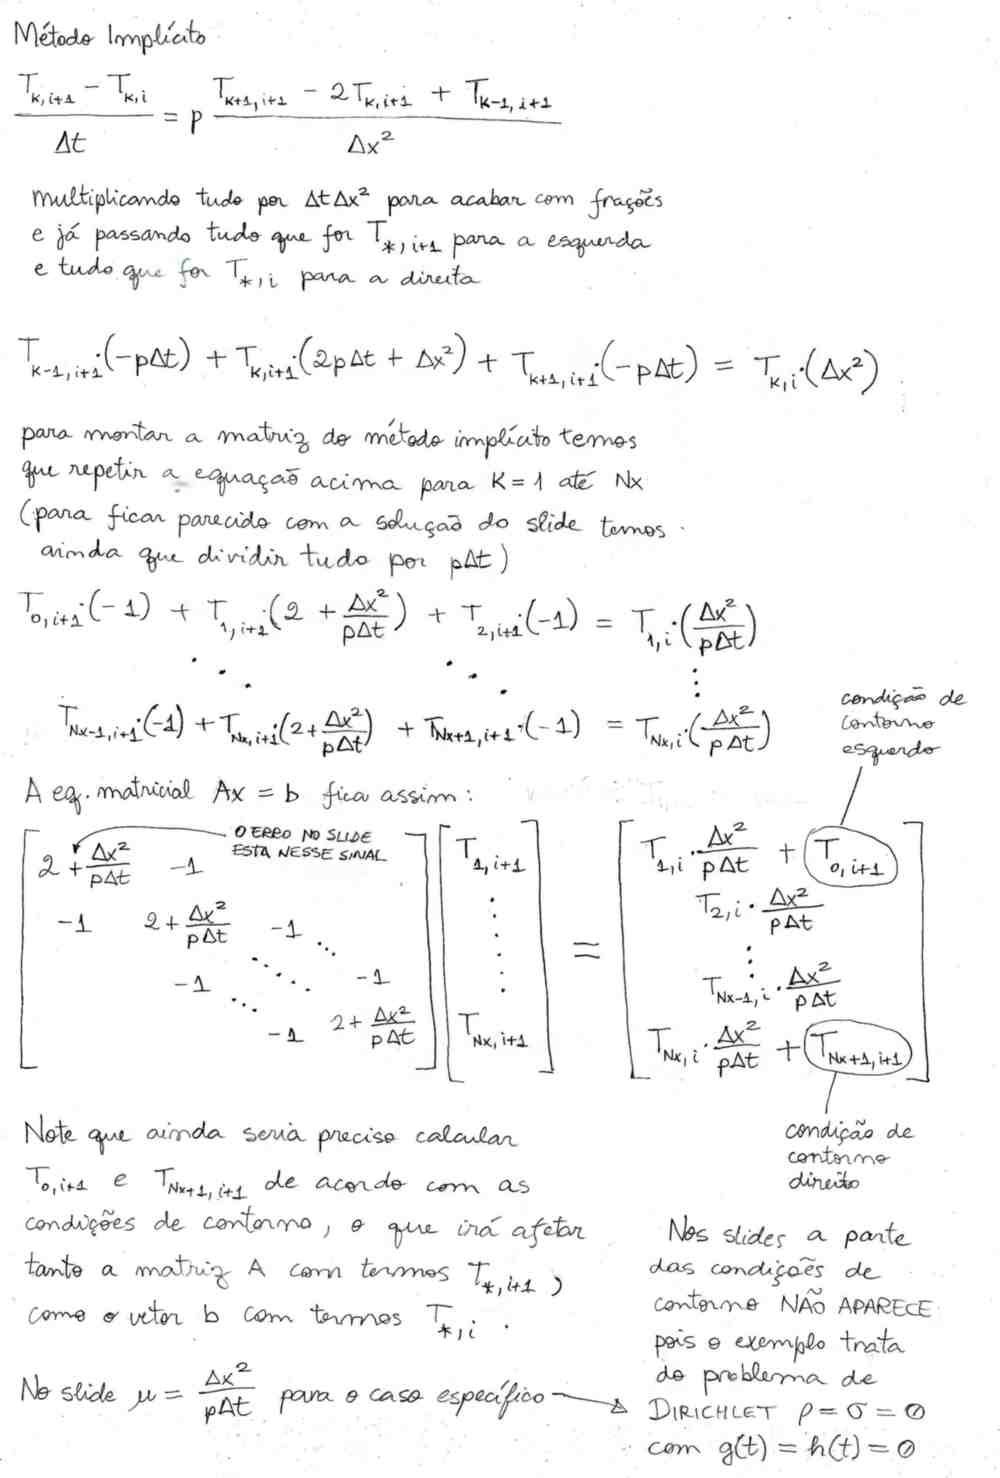 Método Implícito
(T_{k,i+1} − T_{k,i}) / Δt = p (T_{k+1,i+1} − 2T_{k,i+1} + T_{k-1,i+1}) / Δx²
multiplicando tudo por ΔtΔx² para acabar com frações
e já passando tudo que for T_{*,i+1} para a esquerda
e tudo que for T_{*,i} para a direita
T_{k-1,i+1}·(−pΔt) + T_{k,i+1}·(2pΔt + Δx²) + T_{k+1,i+1}·(−pΔt) = T_{k,i}·(Δx²)
para montar a matriz do método implícito temos
que repetir a equação acima para K = 1 até Nx
(para ficar parecido com a solução do slide temos
ainda que dividir tudo por pΔt)
T_{0,i+1}·(−1) + T_{1,i+1}·(2 + Δx²/pΔt) + T_{2,i+1}·(−1) = T_{1,i}·(Δx²/pΔt)
⋱ ⋱ ⋮
T_{Nx-1,i+1}·(−1) + T_{Nx,i+1}·(2 + Δx²/pΔt) + T_{Nx+1,i+1}·(−1) = T_{Nx,i}·(Δx²/pΔt)
condição de
contorno
esquerdo
A eq. matricial Ax = b fica assim:
O ERRO NO SLIDE
ESTA NESSE SINAL
2 + Δx²/pΔt −1
−1 2 + Δx²/pΔt −1 ⋱
−1 ⋱ ⋱ −1
−1 2 + Δx²/pΔt
T_{1,i+1}
⋮
T_{Nx,i+1}
=
T_{1,i}·Δx²/pΔt + T_{0,i+1}
T_{2,i}·Δx²/pΔt
⋮
T_{Nx-1,i}·Δx²/pΔt
T_{Nx,i}·Δx²/pΔt + T_{Nx+1,i+1}
condição de
contorno
direito
Note que ainda seria preciso calcular
T_{0,i+1} e T_{Nx+1,i+1} de acordo com as
condições de contorno, o que irá afetar
tanto a matriz A com termos T_{*,i+1},
como o vetor b com termos T_{*,i}.
No slide μ = Δx²/pΔt para o caso específico
Nos slides a parte
das condições de
contorno NÃO APARECE
pois o exemplo trata
do problema de
DIRICHLET ρ = σ = 0
com g(t) = h(t) = 0